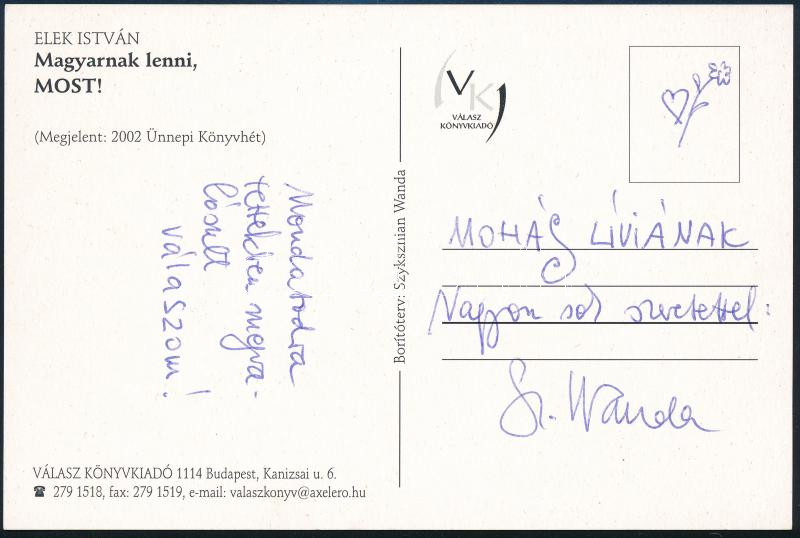 ELEK ISTVÁN
Magyarnak lenni,
MOST!
(Megjelent: 2002 Ünnepi Könyvhét)
Mondatodra
tettekben megva-
lósult
válaszom!
VÁLASZ KÖNYVKIADÓ 1114 Budapest, Kanizsai u. 6.
☎ 279 1518, fax: 279 1519, e-mail: valaszkonyv@axelero.hu
Borítóterv: Szyksznian Wanda
VK
VÁLASZ
KÖNYVKIADÓ
MOHÁS LÍVIÁNAK
Nagyon sok szeretettel:
Sz. Wanda